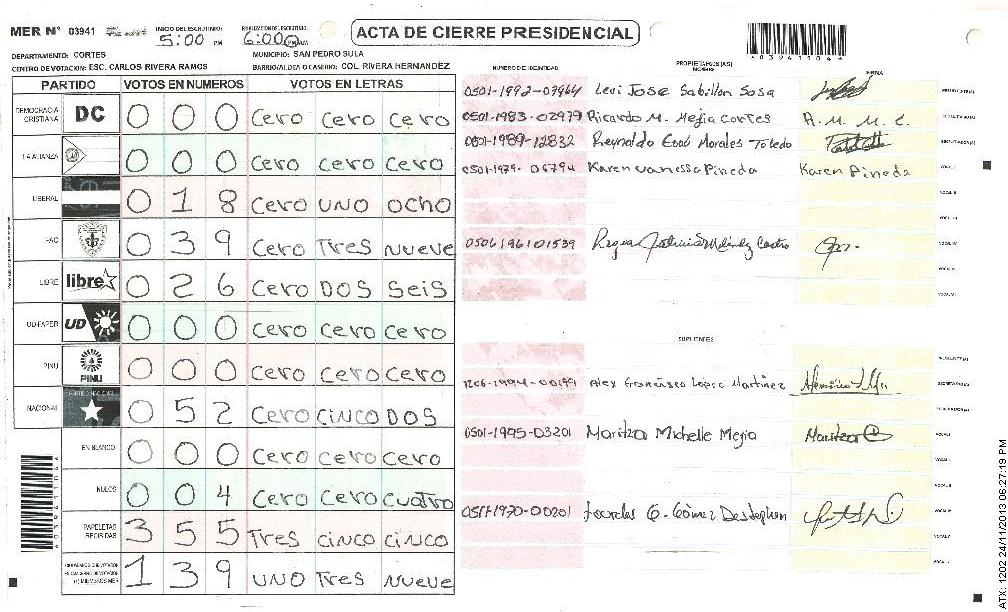 MER N° 03941 INICIO DEL ESCRUTINIO: 5:00 PM FINALIZACION DEL ESCRUTINIO: 6:00 PM ACTA DE CIERRE PRESIDENCIAL
DEPARTAMENTO: CORTES MUNICIPIO: SAN PEDRO SULA
CENTRO DE VOTACION: ESC. CARLOS RIVERA RAMOS BARRIO/ALDEA O CASERIO: COL. RIVERA HERNANDEZ
*039411044*
PARTIDO VOTOS EN NUMEROS VOTOS EN LETRAS
DEMOCRACIA CRISTIANA DC 0 0 0 cero cero cero
LA ALIANZA 0 0 0 cero cero cero
LIBERAL 0 1 8 cero uno ocho
FAC 0 3 9 cero Tres nueve
LIBRE libre 0 2 6 cero DOS seis
UD-FAPER UD 0 0 0 cero cero cero
PINU PINU 0 0 0 cero cero cero
NACIONAL PARTIDO NACIONAL 0 5 2 cero cinco DOS
EN BLANCO 0 0 0 cero cero cero
NULOS 0 0 4 cero cero cuatro
PAPELETAS RECIBIDAS 3 5 5 Tres cinco cinco
1 3 9 uno Tres nueve
NUMERO DE IDENTIDAD PROPIETARIOS (AS) NOMBRE FIRMA
0501-1992-07964 Levi Jose Sabillon Sosa
0501-1983-02979 Ricardo M. Mejia Cortes R.M.M.C.
0801-1989-12832 Reynaldo Esaú Morales Toledo
0501-1979-06794 Karen vanessa Pineda Karen Pineda
0506196101539
SUPLENTES
1206-1994-00199 Alex Francisco Lopez Martinez
0501-1995-03201 Maritza Michelle Mejia Maritza
0511-1970-00201 Lourdes G. Gómez Destephen
ATX: 1202 24/11/2013 06:27:19 PM